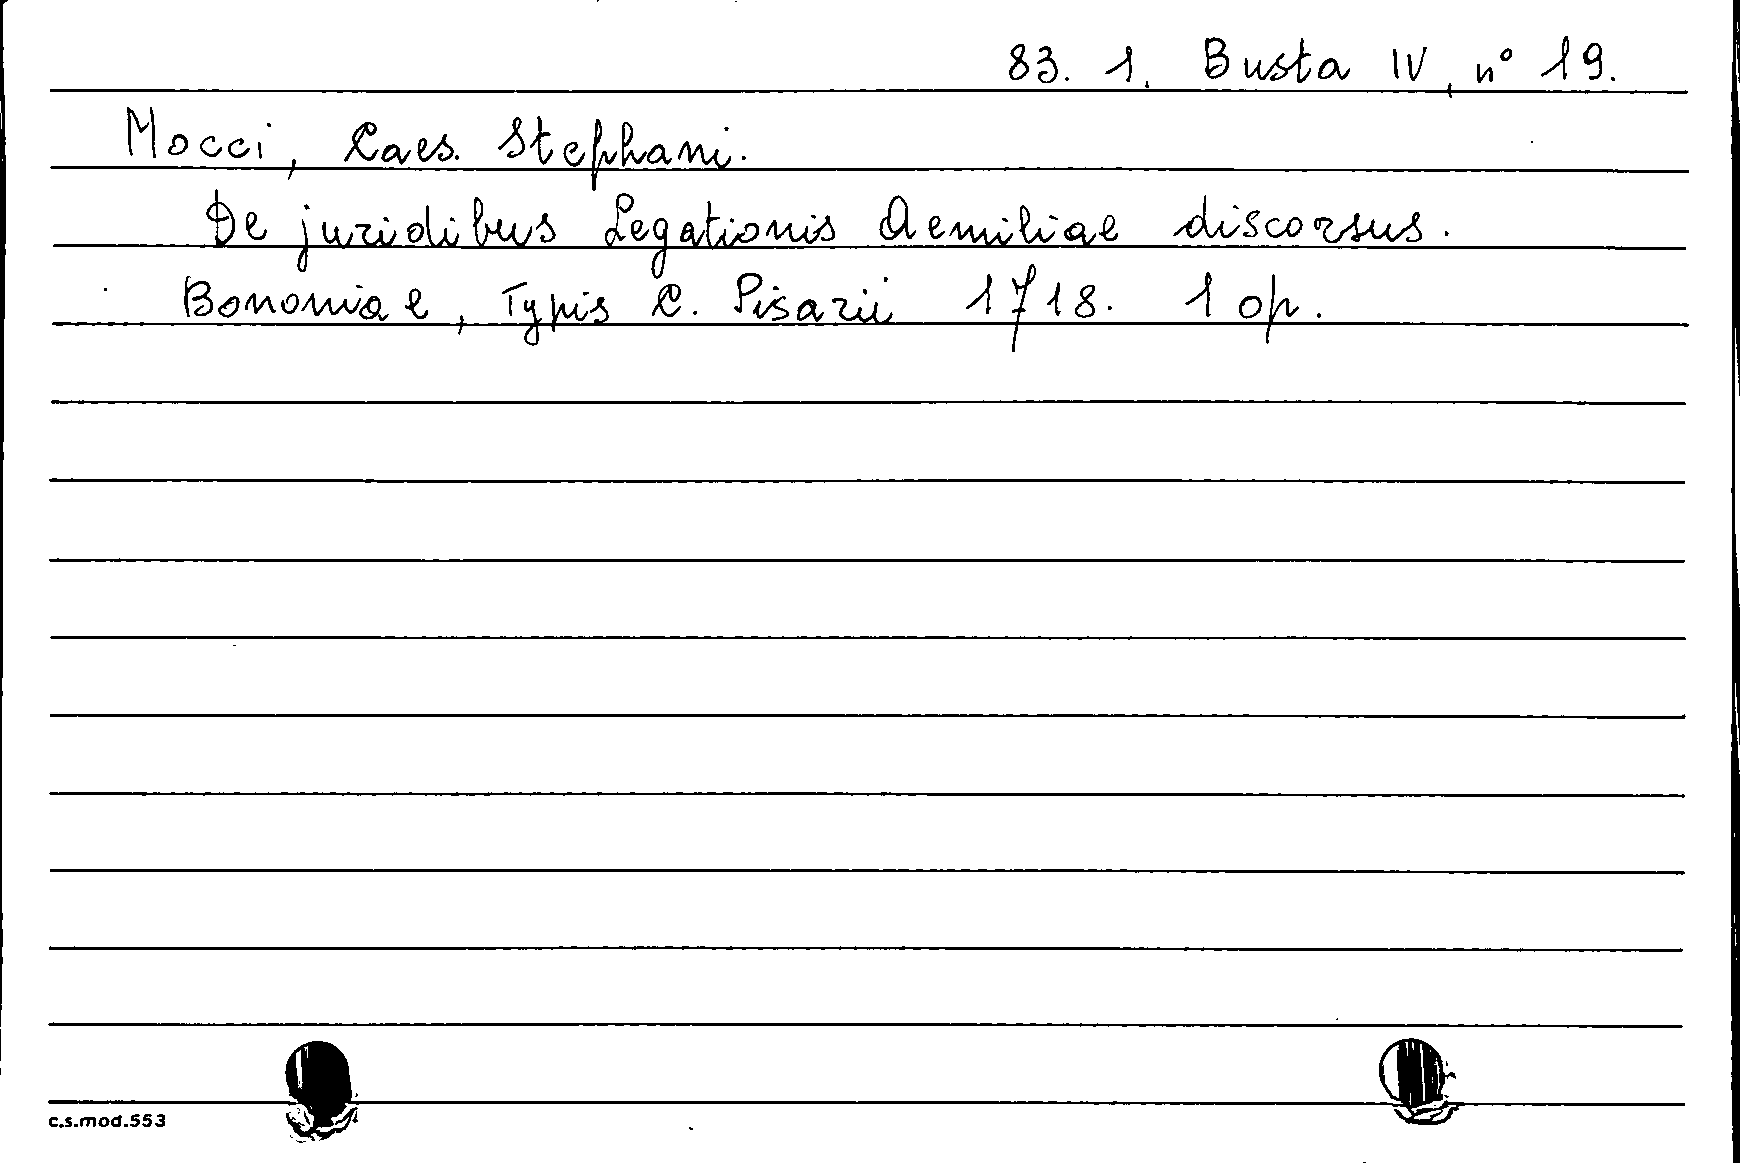 83. 1. Busta IV, n° 19.
Mocci, Caes. Stephani.
De juridibus Legationis Aemiliae discorsus.
Bononiae, Typis C. Pisarii 1718. 1 op.
c.s.mod.553